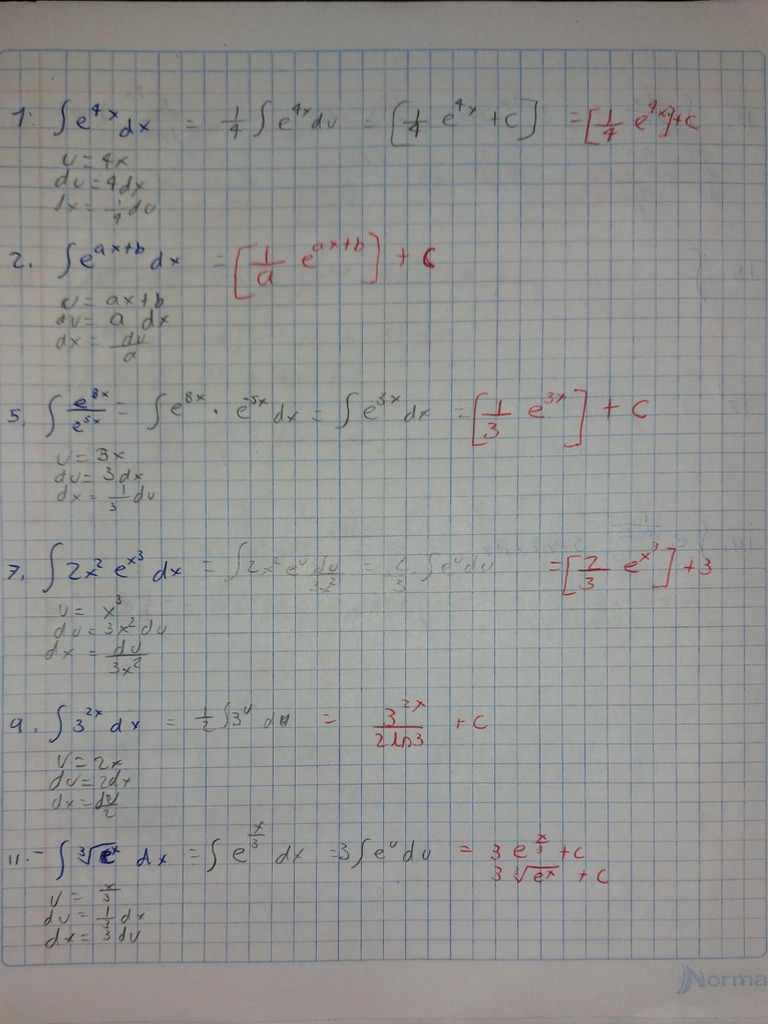 1. ∫ e^{4x} dx = 1/4 ∫ e^{4x} du = [1/4 e^{4x} + C] = [1/4 e^{4x}] + C
u = 4x
du = 4dx
dx = 1/4 du
2. ∫ e^{ax+b} dx = [1/a e^{ax+b}] + C
u = ax+b
du = a dx
dx = du/a
5. ∫ e^{8x}/e^{5x} = ∫ e^{8x} · e^{-5x} dx = ∫ e^{3x} dx = [1/3 e^{3x}] + C
u = 3x
du = 3 dx
dx = 1/3 du
7. ∫ 2x² e^{x³} dx = ∫ 2x² e^u du/3x² = 2/3 ∫ e^u du = [2/3 e^{x³}] + 3
u = x³
du = 3x² du
dx = du/3x²
9. ∫ 3^{2x} dx = 1/2 ∫ 3^u du = 3^{2x}/2ln3 + C
u = 2x
du = 2dx
dx = du/2
11.- ∫ ∛e^x dx = ∫ e^{x/3} dx = 3 ∫ e^u du = 3 e^{x/3} + C
3 ∛e^x + C
u = x/3
du = 1/3 dx
dx = 3 du
Norma